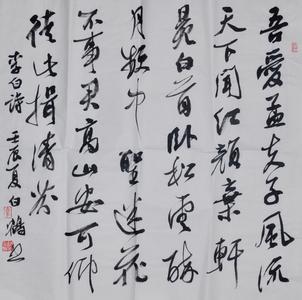 吾愛孟夫子風流
天下聞紅顏棄軒
冕白首卧松雲醉
月頻中聖迷花
不事君高山安可仰
徒此揖清芬
李白詩 壬辰夏白鶴